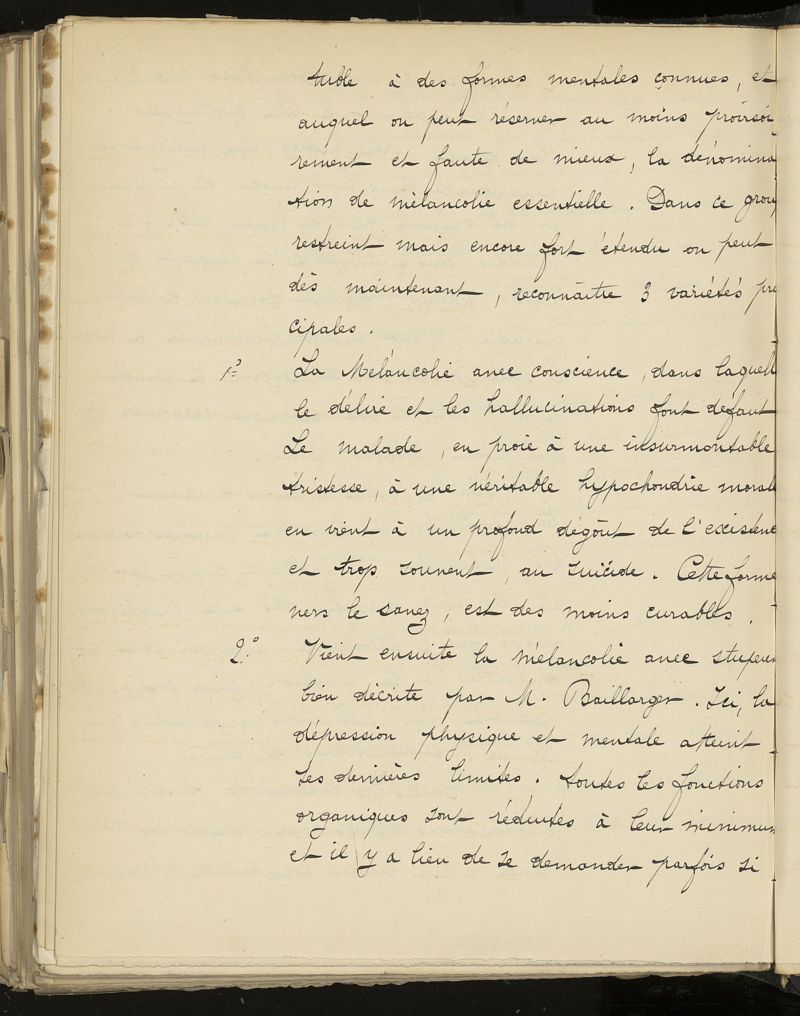 tuble à des formes mentales connues, et
auquel on peut réserver au moins provisoi
rement et faute de mieux, la dénomina
tion de mélancolie essentielle. Dans ce grou
restreint mais encore fort étendu on peut
dès maintenant, reconnaitre 3 variétés pri
cipales.
1º La Mélancolie avec conscience, dans laquell
le délire et les hallucinations font défaut
Le malade, en proie à une insurmontable
tristesse, à une véritable hypochondrie morale
en vient à un profond dégôut de l'existenc
et trop souvent, au suicide. Cette forme
vers le , est des moins curables.
2º Vient ensuite la mélancolie avec stupeur
bien décrite par M. Baillarger. Ici, la
dépression physique et mentale atteint
ses dernières limites. toutes les fonctions
organiques sont réduites à leur minimum
et il y a lieu de se demander parfois si